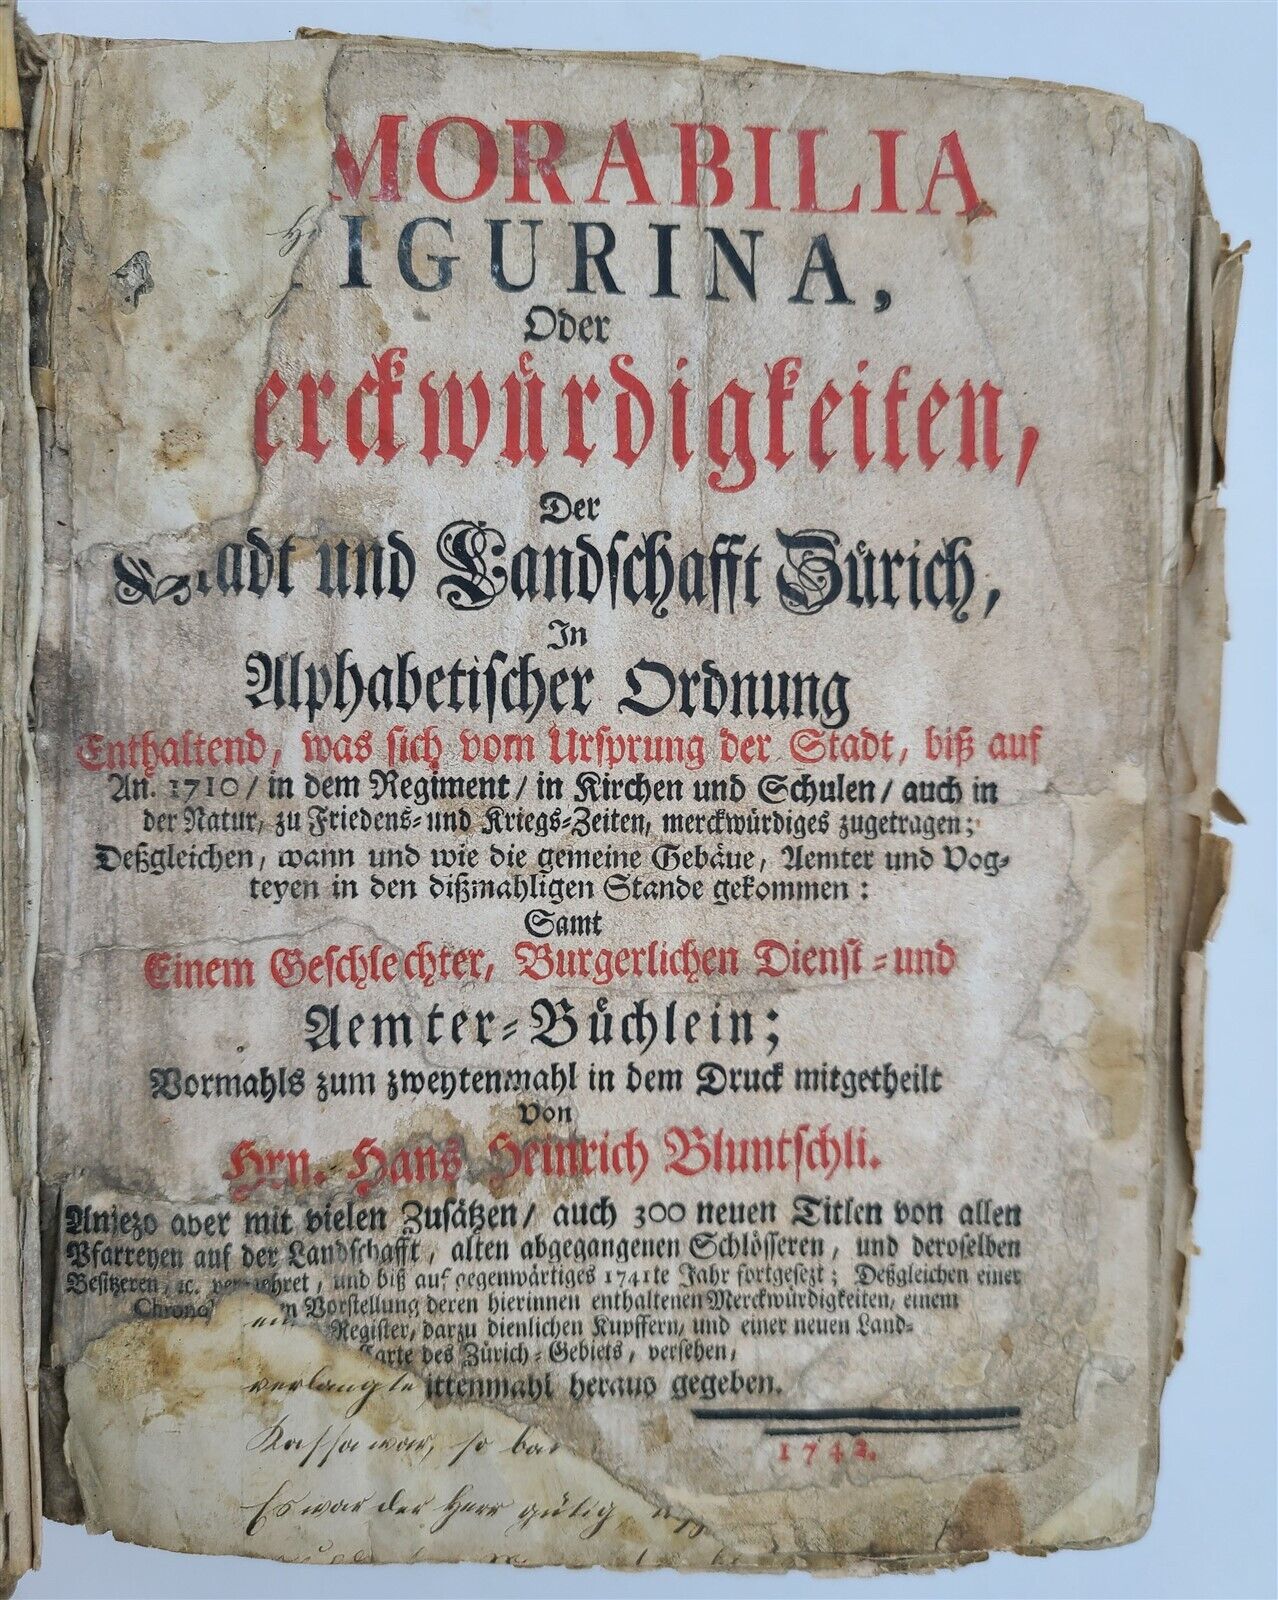 MORABILIA
IGURINA,
Oder
erckwůrdigkeiten,
Der
Stadt und Landschafft Zůrich,
In
Alphabetischer Ordnung
Enthaltend, was sich vom Ursprung der Stadt, biß auf
An. 1710 / in dem Regiment / in Kirchen und Schulen / auch in
der Natur, zu Friedens= und Kriegs=Zeiten, merckwürdiges zugetragen;
Deßgleichen, wann und wie die gemeine Gebäue, Aemter und Vog=
teyen in den dißmahligen Stande gekommen:
Samt
Einem Geschlechter, Burgerlichen Dienst= und
Aemter=Bůchlein;
Vormahls zum zweytenmahl in dem Druck mitgetheilt
Von
Hrn. Hans Heinrich Bluntschli.
Anjezo aber mit vielen Zusätzen / auch 300 neuen Titlen von allen
Pfarreyen auf der Landschafft, alten abgegangenen Schlösseren, und deroselben
Besitzeren, ꝛc. vermehret, und biß auf gegenwärtiges 1741te Jahr fortgesezt; Deßgleichen einer
Chrono n Vorstellung deren hierinnen enthaltenen Merckwürdigkeiten, einem
Register, darzu dienlichen Kupffern, und einer neuen Land=
arte des Zürich=Gebiets, versehen,
verlangte ittenmahl heraus gegeben.
Kassa war, so
1742.
Es war der Herr gütig